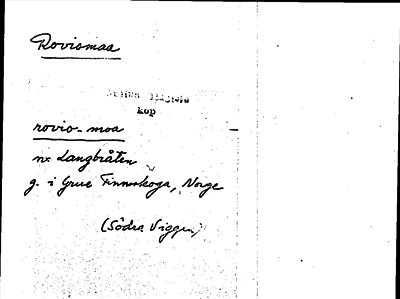 Rovismaa
kop
rovio-moa
n= Langbråten
g. i Grue Finnskoga, Norge
(Södra Viggen)